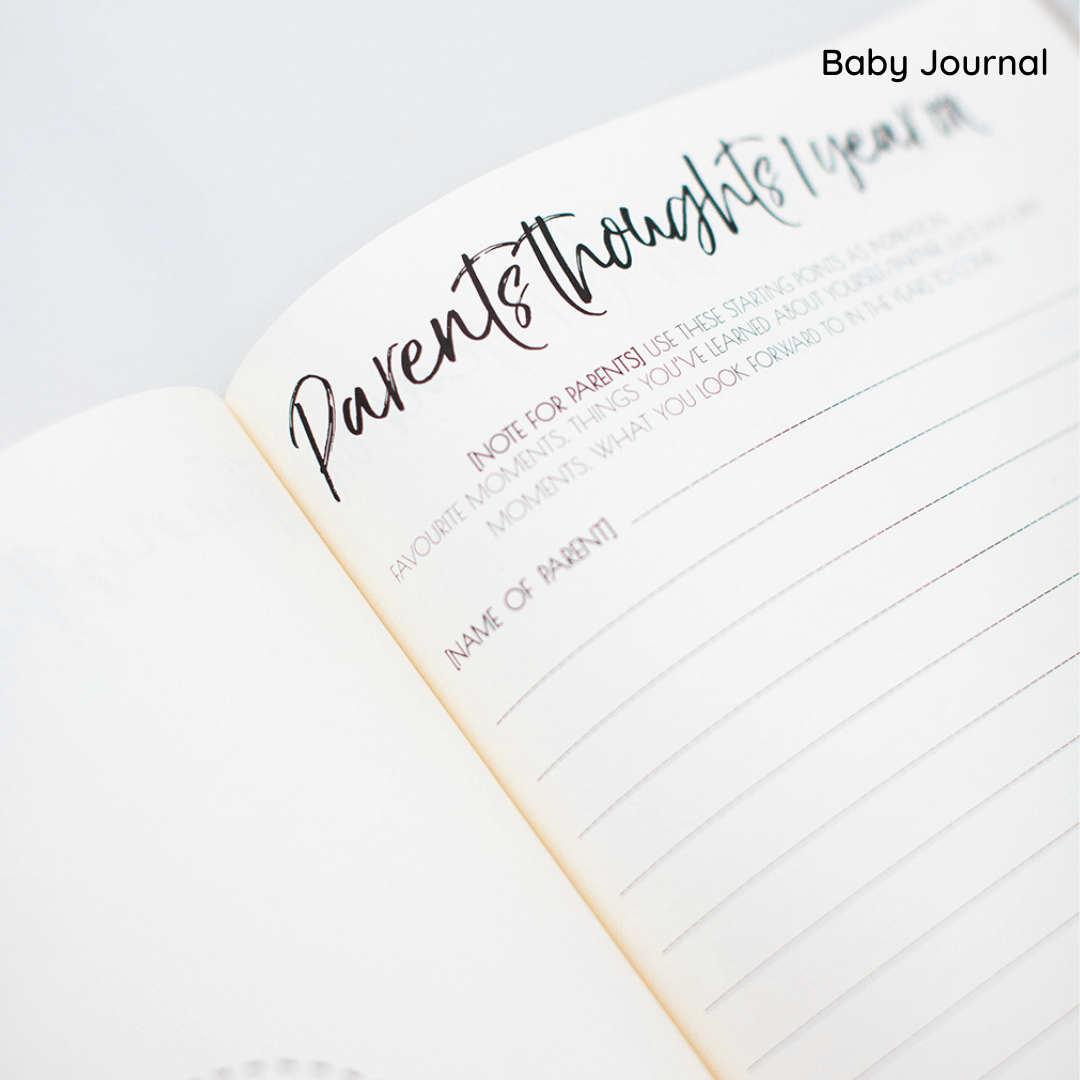 Baby Journal
Parents thoughts 1 year on
[NOTE FOR PARENTS] USE THESE STARTING POINTS AS INSPIRATION:
FAVOURITE MOMENTS, THINGS YOU'VE LEARNED ABOUT YOURSELF/PARTNER,
MOMENTS, WHAT YOU LOOK FORWARD TO IN THE YEARS TO COME
[NAME OF PARENT]